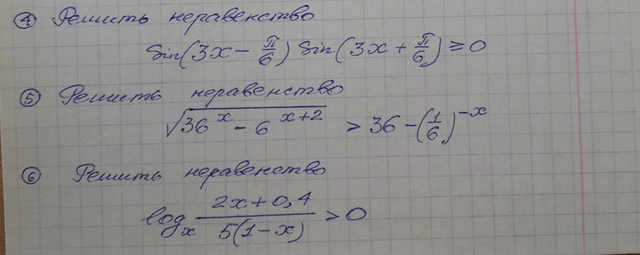 ④ Решить неравенство
Sin(3x − π/6) Sin(3x + π/6) ≥ 0
⑤ Решить неравенство
√(36^x − 6^(x+2)) > 36 − (1/6)^(−x)
⑥ Решить неравенство
log_x (2x + 0,4)/(5(1−x)) > 0